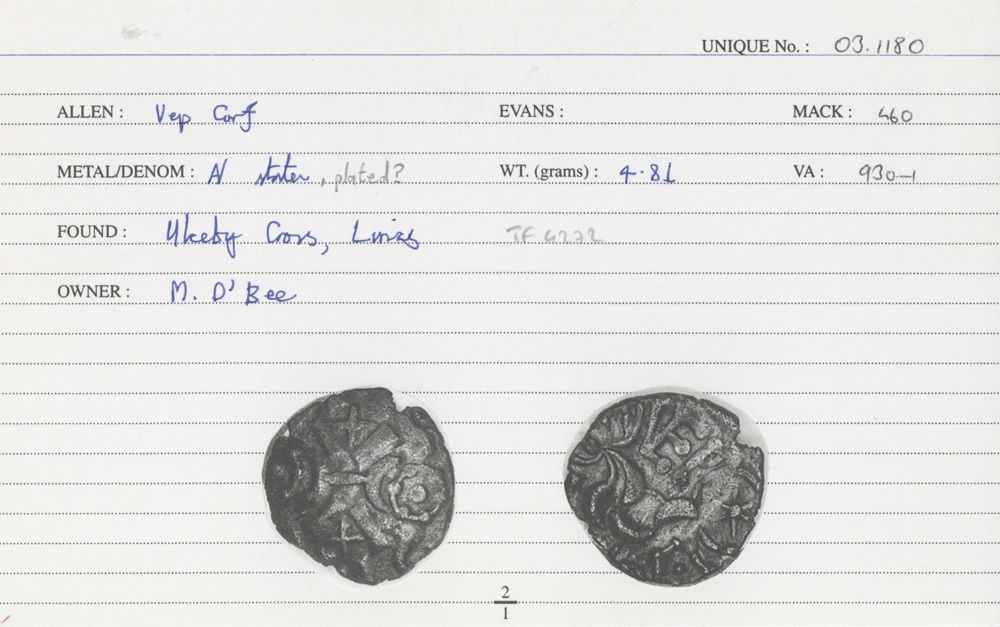 UNIQUE No. : 03.1180
ALLEN : Vep Corf EVANS : MACK : 460
METAL/DENOM : N stater, plated? WT. (grams) : 4.81 VA : 930-1
FOUND : Ulceby Cross, Lincs TF 4272
OWNER : M. D'Bee
2
1